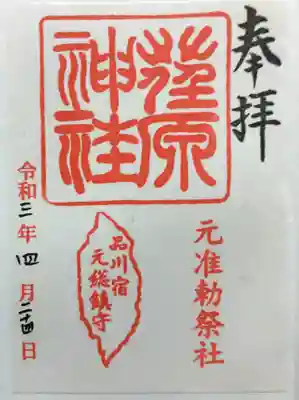 奉拝
荏原
神社
元准勅祭社
品川宿
元総鎮守
令和三年四月二十四日